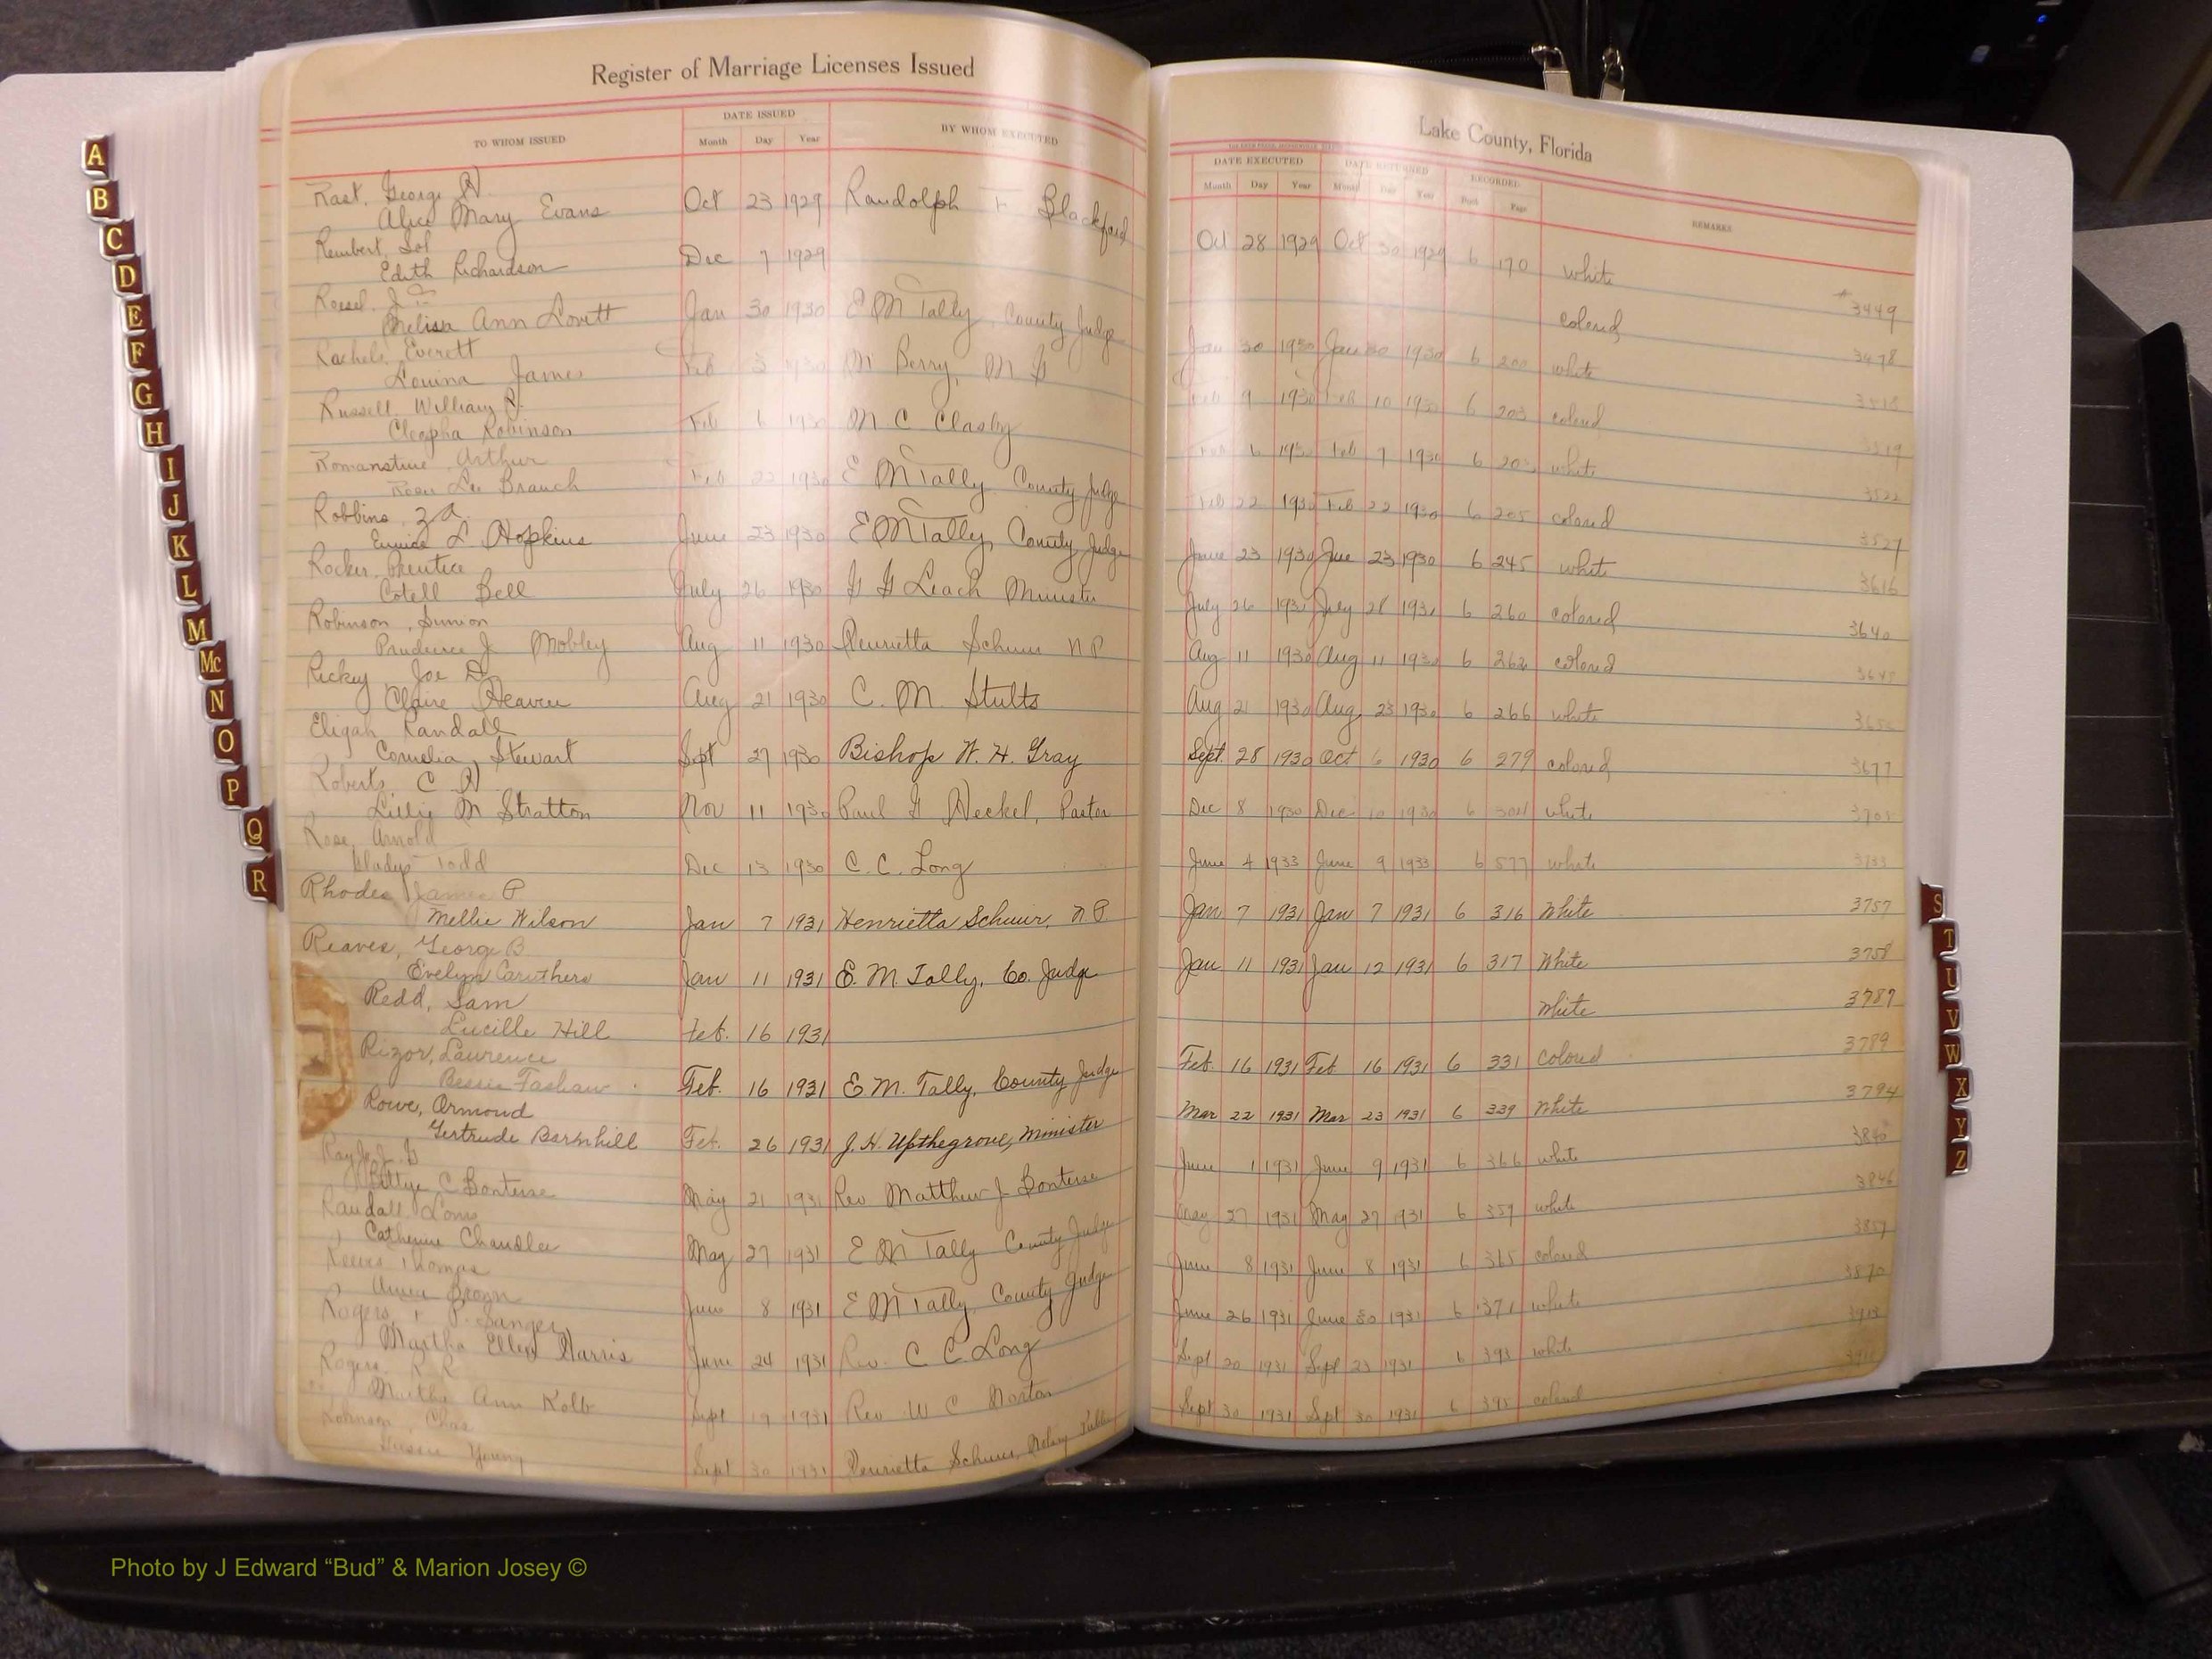 Register of Marriage Licenses Issued
TO WHOM ISSUED
DATE ISSUED
Month Day Year
BY WHOM EXECUTED
Rast, George H.
Alice Mary Evans Oct 23 1929 Randolph F Blackford
Rembert, Sol
Edith Richardson Dec 7 1929
Melissa Ann Lovett Jan 30 1930 E M Tally, County Judge
Rachels, Everett
Louina James Feb 3 1930 M Berry, M G
Russell, William R.
Cleopha Robinson Feb 6 1930 M C Clasby
Romanstine, Arthur
Rosa Lee Branch Feb 22 1930 E M Tally County Judge
Robbins, Z A
Eunice L Hopkins June 23 1930 E M Tally, County Judge
Rocker, Prentice
Cotell Bell July 26 1930 Leach Minister
Robinson, Junior
Prudence J Mobley Aug 11 1930 Henrietta Schuur N P
Rickey, Joe D
Claire Heaven Aug 21 1930 C. M. Stults
Eligah Randall
Cornelia Stewart Sept 27 1930 Bishop W. H. Gray
Roberts, C H
Lilly M Stratton Nov 11 1930 Paul G Heckel, Pastor
Rose, Arnold
Gladys Todd Dec 13 1930 C. C. Long
Rhodes James P
Mellie Wilson Jan 7 1931 Henrietta Schuur, N.P.
Reaves, George B
Evelyn Caruthers Jan 11 1931 E. M. Tally, Co. Judge
Redd, Sam
Lucille Hill Feb. 16 1931
Rizor, Laurence
Bessie Fashaw Feb. 16 1931 E M. Tally, County Judge
Rowe, Ormond
Gertrude Barnhill Feb. 26 1931 J. H. Upthegrove, Minister
Bonterse May 21 1931 Rev Matthew J Bonterse
Randall Louis
Catherine Chandler May 27 1931 E M Tally County Judge
Reeves Thomas
June 8 1931 E M Tally, County Judge
Rogers, P. Sanger
Martha Ellen Harris June 24 1931 Rev. C C. Long
Rogers R R
Martha Ann Kolb Sept 19 1931 Rev W C Norton
Robinson, Chas
Young Sept 30 1931 Henrietta Schuur, Notary Public
Lake County, Florida
DATE EXECUTED DATE RETURNED RECORDED
Month Day Year Month Day Year Book Page REMARKS
Oct 28 1929 Oct 30 1929 6 170 white
colored 3449
Jan 30 1930 Jan 30 1930 6 200 white 3478
Feb 9 1930 Feb 10 1930 6 203 colored
Feb 6 1930 Feb 7 1930 6 white 3519
Feb 22 1930 Feb 22 1930 6 205 colored 3522
June 23 1930 June 23 1930 6 245 white 3527
July 26 1930 July 28 1930 6 260 colored 3616
Aug 11 1930 Aug 11 1930 6 262 colored 3640
Aug 21 1930 Aug 23 1930 6 266 white
Sept. 28 1930 Oct 6 1930 6 279 colored
Dec 8 1930 Dec 10 1930 6 304 white 3677
June 4 1933 June 9 1933 6 577 white
Jan 7 1931 Jan 7 1931 6 316 White 3757
Jan 11 1931 Jan 12 1931 6 317 White 3758
White 3787
Feb. 16 1931 Feb 16 1931 6 331 Colored 3789
Mar 22 1931 Mar 23 1931 6 339 White 3794
June 1 1931 June 9 1931 6 366 white 3840
May 27 1931 May 27 1931 6 359 white 3846
June 8 1931 June 8 1931 6 365 colored 3857
June 26 1931 June 30 1931 6 371 white 3870
Sept 20 1931 Sept 23 1931 6 393 white
Sept 30 1931 Sept 30 1931 6 395 colored
A
B
C
D
E
F
G
H
I
J
K
L
M
Mc
N
O
P
Q
R
S
T
U
V
W
X
Y
Z
Photo by J Edward “Bud” & Marion Josey ©